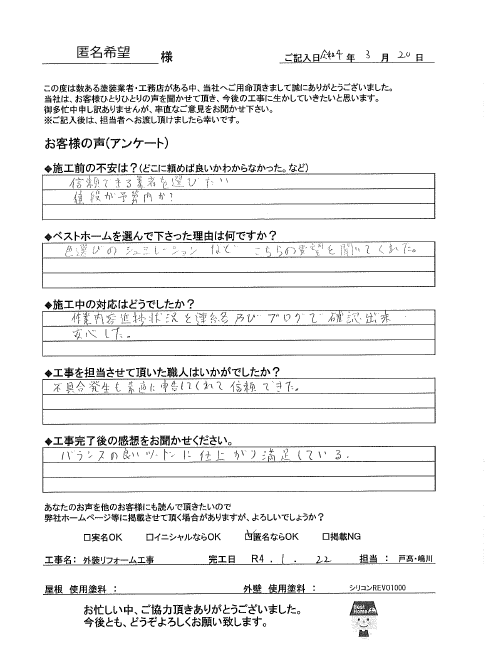 匿名希望 様
ご記入日 令和4 年 3 月 20 日
この度は数ある塗装業者・工務店がある中、当社へご用命頂きまして誠にありがとうございました。
当社は、お客様ひとりひとりの声を聞かせて頂き、今後の工事に生かしていきたいと思います。
御多忙中申し訳ありませんが、率直なご意見をお聞かせ下さい。
※ご記入後は、担当者へお渡し頂けましたら幸いです。
お客様の声(アンケート)
◆施工前の不安は？(どこに頼めば良いかわからなかった。など)
信頼できる業者を選びたい
値段が予算内か?
◆ベストホームを選んで下さった理由は何ですか？
色選びのシュミレーションなど こちらの要望を聞いてくれた。
◆施工中の対応はどうでしたか？
作業内容進捗状況を連絡名及びブログで確認出来
安心した。
◆工事を担当させて頂いた職人はいかがでしたか？
不具合発生も素直に申告してくれて信頼できた。
◆工事完了後の感想をお聞かせください。
バランスの良いツートンに仕上がり満足している。
あなたのお声を他のお客様にも読んで頂きたいので
弊社ホームページ等に掲載させて頂く場合がありますが、よろしいでしょうか？
□実名OK □イニシャルならOK ☑匿名ならOK □掲載NG
工事名： 外装リフォーム工事 完工日 R4 . 1 . 22 担当： 戸高・嶋川
屋根 使用塗料： 外壁 使用塗料： シリコンREVO1000
お忙しい中、ご協力頂きありがとうございました。
今後とも、どうぞよろしくお願い致します。
Best Home